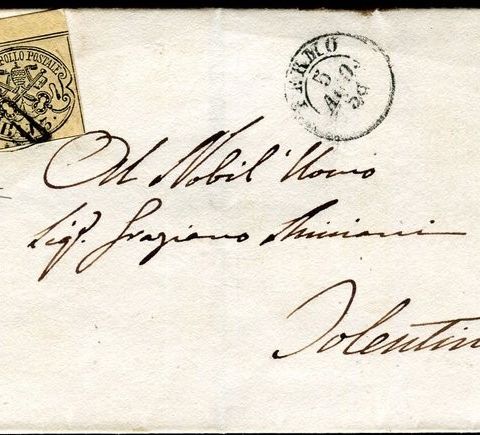 BOLLO POSTALE
BAI. 3.
FERMO
5
AGO
58
Al Nobil'Uomo
Sig.r Graziano
Tolentin